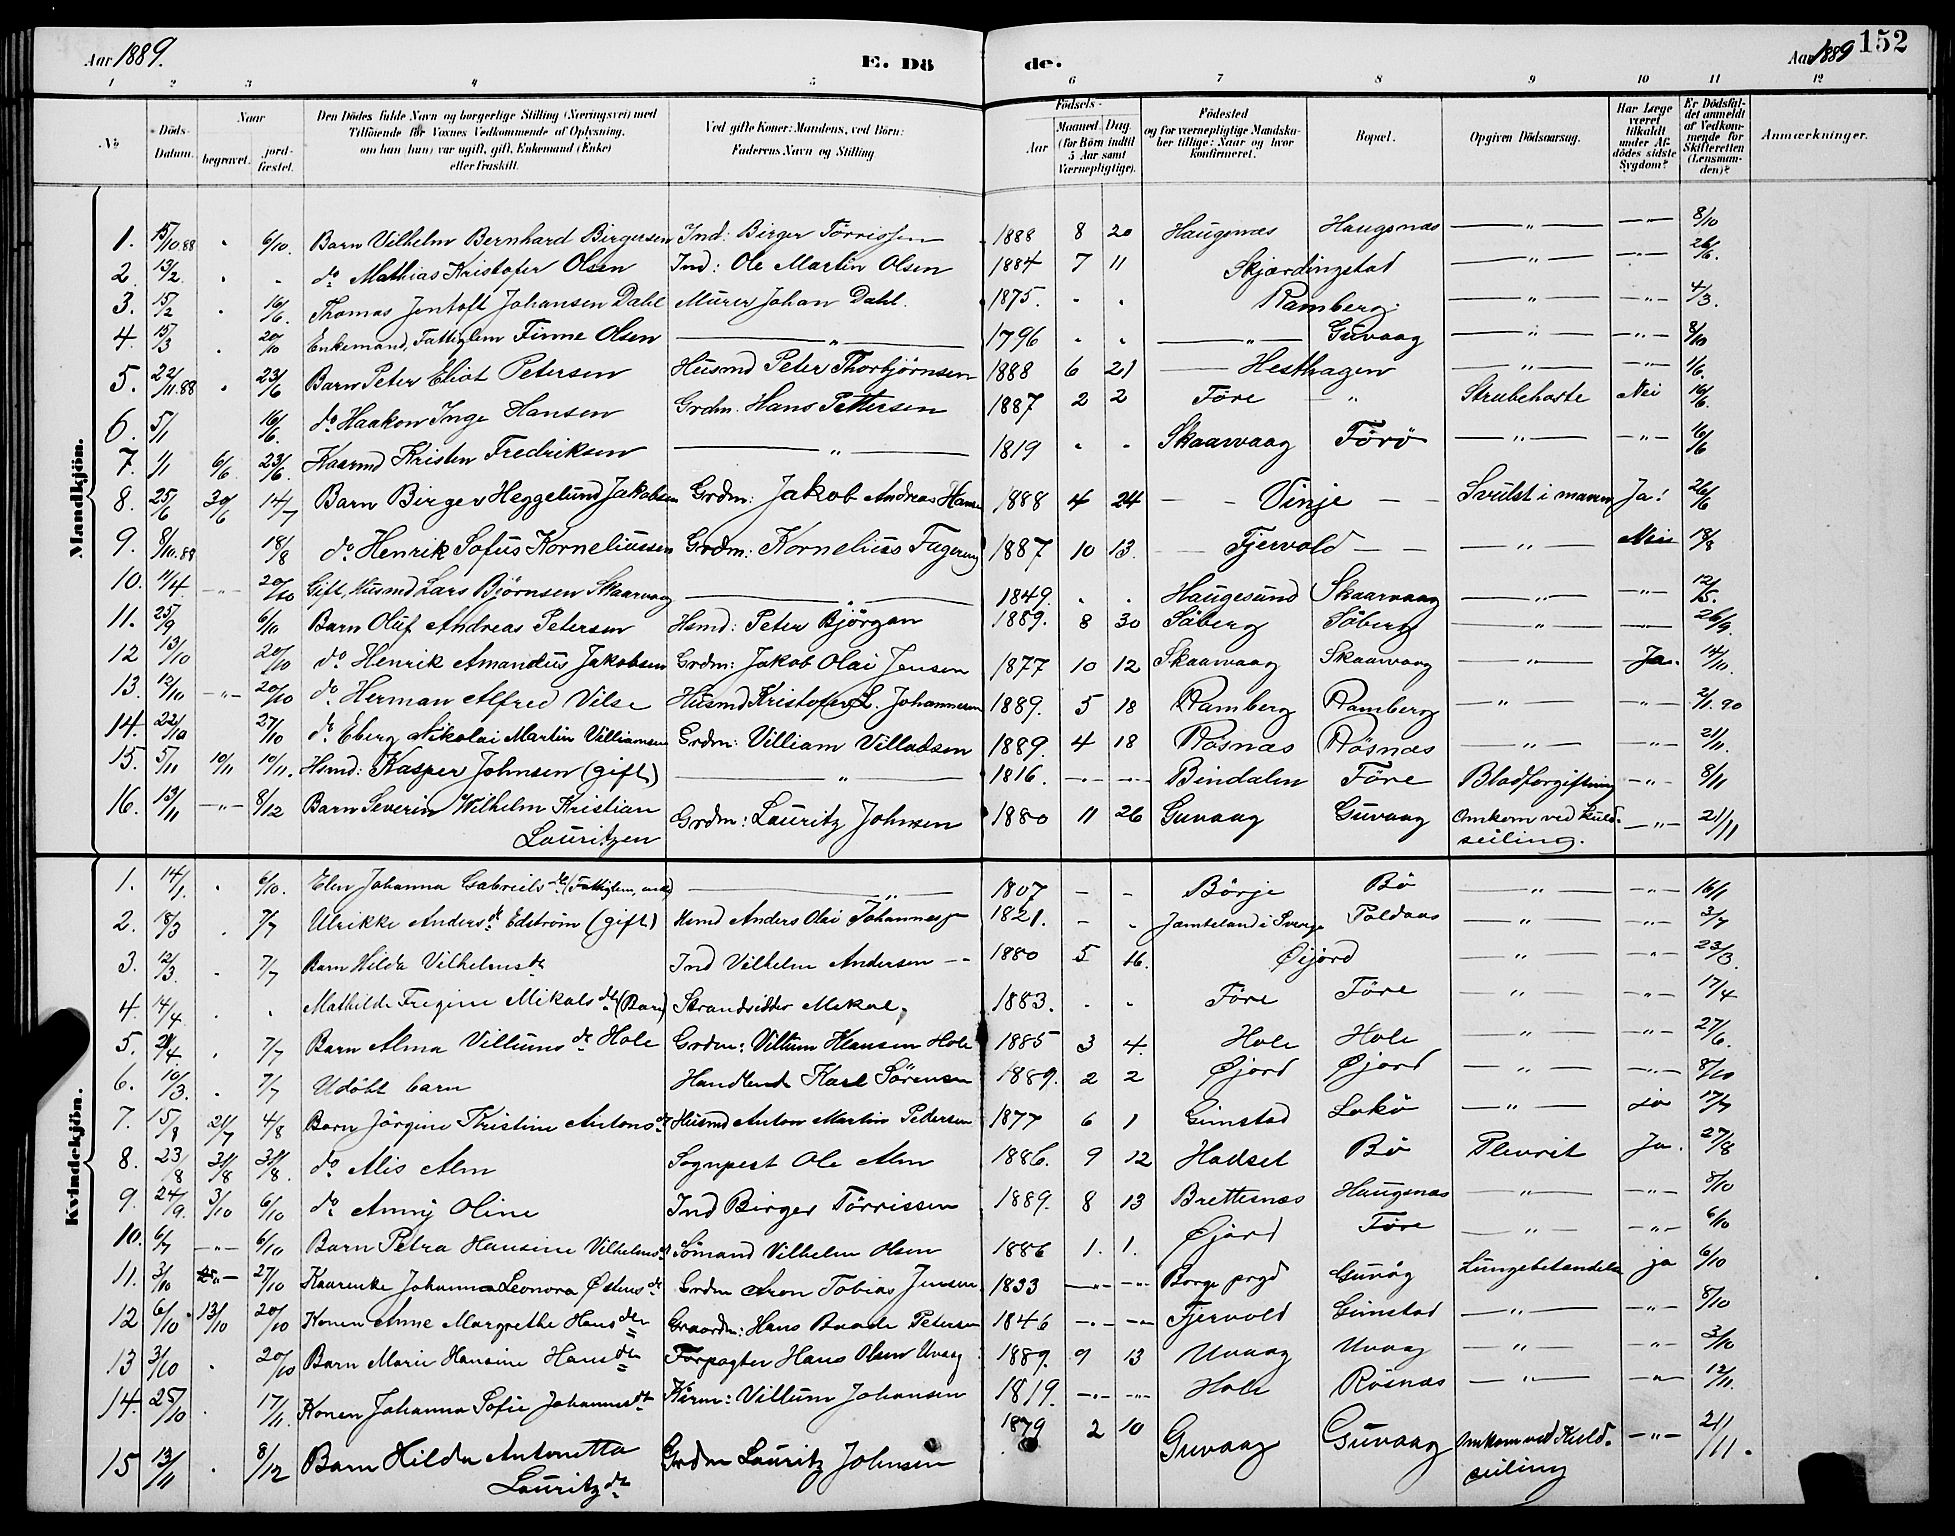 Aar 1889. E. Dö de. Aar 1889 152
1 2 3 4 5 6 7 8 9 10 11 12
No. Döds-Datum. Naar begravet. jordfæstet. Den Dödes fulde Navn og borgerlige Stilling (Næringsvei) med Tilföiende for Voxnes Vedkommende af Oplysning, om han (hun) var ugift, gift, Enkemand (Enke) eller fraskilt. Ved gifte Koner: Mandens, ved Börn: Faderens Navn og Stilling Födsels- Aar Maaned Dag (for Börn indtil 5 Aar samt Værnepligtige). Födested og for værnepligtige Mandskaber tillige: Naar og hvor konfirmeret. Bopæl. Opgiven Dödsaarsag. Har Læge været tilkaldt under Afdödes sidste Sygdom? Er Dödsfaldet anmeldt af Vedkommende for Skifteretten (Lensmanden)? Anmærkninger.
Mandkjön.
1. 15/10.88 " 6/10. Barn Vilhelm Bernhard Birgersen Ind: Birger Törrissen 1888 8 20 Haugsnæs Haugsnæs — " — — " — 8/10
2. 13/2. " " do Mathias Kristofer Olsen Ind: Ole Martin Olsen 1884 7 11 Skjærdingstad — " — — " — 26/6.
3. 15/2 " 16/6. Thomas Jentoft Johansen Dahl Murer Johan Dahl. 1875. " " Ramberg. — " — — " — 4/3.
4. 15/3 " 20/10 Enkemand, Fattiglem Finne Olsen — " — 1796 " " — " — Guvaag — " — — " — 8/10
5. 22/11.88 " 23/6 Barn Peter Eliot Petersen Husmd Peter Thorbjörnsen 1888 6 21 — Hesthagen — " — — " — 1/6.
6. 5/1 16/6. do Haakon Inge Hansen Grdm. Hans Pettersen 1887 2 2 Före — " Strubehoste Nei 16/6.
7. 1/1 6/6 23/6. Kaarmd Kristen Fredriksen — " — 1819 " " Skaarvaag Förö — " — — " — 16/6
8. 25/6 30/6 14/7 Barn Birger Heggelund Jakobsen Grdm: Jakob Andreas Hansen 1888 4 24 — — Vinje — — Svulst i maven Ja! 26/6
9. 8/10.88 18/8 do Henrik Sofus Korneliussen Grdm: Kornelius Fagereng 1887 10 13. — Fjervold — — — " — Nei 18/8
10. 11/4. — " — 20/10 Gift, Husmd Lars Björnsen Skaarvaag — " — 1849. " " Haugesund Skaarvaag — " — — " — 12/5.
11. 25/9 6/10 Barn Oluf Andreas Petersen Hsmd: Peter Björgan 1889. 8 30 Söberg Söberg — " — — " — 26/9.
12 13/10 20/10 do Henrik Amandus Jakobsen Grdm: Jakob Olai Jensen 1877 10 12 Skaarvaag Skaarvaag — " — Ja. 14/10.
13. 12/10 — " — 20/10 do Herman Alfred Vilse Husmd Kristofer L. Johannesen 1889. 5 18 Ramberg Ramberg — " — — " — 2/1.90
14. 22/10 27/10 do Eberg Nikolai Martin Villiamsen Grdm: Villiam Villadsen 1889. 4 18 Røsnæs Røsnæs — " — — " — 21/11.
15. 5/11 10/11 10/11. Hsmd: Kasper Johnsen (gift) — " — 1816. — " — — " — Bindalen Före Blodforgiftning — " — 8/11
16. 13/11 — " — 8/12 Barn Severin Wilhelm Kristian Grdm: Lauritz Johnsen 1880 11 26 Guvaag Guvaag Omkom ved kuld- — " — 21/11
Lauritzen seiling.
Kvindekjön.
1. 14/1. " 6/10. Elen Johanna Gabrielsdtr (Fattiglem, enke) — " — 1807 — — Börje Bö — " — — " — 16/1
2. 18/3 " 7/7 Ulrikke Andersdtr Edström (gift) Hsmd Anders Olai Johannesen 1821. — " Jamteland i Sverige Poldaas — " — — " — 3/7
3. 12/3. " 7/7 Barn Hilda Vilhelmsdtr Ind Vilhelm Andersen — 1880 5 16. Øijord — " — — " — 23/3.
4. 14/4. " " Mathilde Fregine Mikalsdtr (Barn) Strandsidder Mikal. 1883. " " Före Före — " — — " — 17/4
5. 21/4 " 7/7 Barn Alma Villumsdtr Hole Grdm: Villum Hansen Hole 1885 3 4. Hole Hole — " — — " — 27/6.
6. 10/3. " 7/7 Udöbt barn Handlend Karl Sörensen 1889. 2 2 Øjord Øjord — " — — " — 8/10
7. 15/8 21/7 4/8 Barn Jörgine Kristine Antonsdtr Husmd Anton Martin Pedersen 1877 6 1 Gimstad Lokö — " — Ja 17/7
8. 23/8 31/8 31/8. do Alis Alm Sognpest Ole Alm 1886. 9 12 Hadsel Bö Plevrit Ja. 27/8
9. 24/9. 3/10 6/10 do Anny Oline Ind Birger Törrissen 1889. 8 13 Brettesnæs Haugsnæs — " — — " — 8/10
10. 6/7 — " — 6/10 Barn Petra Hansine Vilhelmsdtr Sömand Vilhelm Olsen 1886 1. 1. Øjord Före — " — — " — 6/10
11. 3/10 27/10 Kaarenke Johanna Leonora Østensdtr Grdm Aron Tobias Jensen 1833 — " — — " — Borge prgd Guvåg Lungebetændelse ja 6/10
12 6/10 13/10 20/10 Konen Anne Margrethe Hansdtr Graardm: Hans Baade Petersen 1846 — " — — " — Fjervold Gimstad — " — — " — 8/10
13 3/10 " 20/10 Barn Marie Hansine Hansdtr Forpagter Hans Olsen Uvaag 1889. 9 13 Uvaag Uvaag — " — — " — 3/10
14. 25/10 " 17/11. Konen Johanna Sofie Johannesdtr Kårm: Villum Johansen 1819. — " — — " — Hole Røsnæs — " — — " — 12/11.
15 13/11 " 8/12 Barn Hilda Antonetta Grdm Lauritz Johnsen 1879 2 10 Guvaag Guvaag Omkom ved Kuld- — " — 21/11.
Lauritzdtr seiling